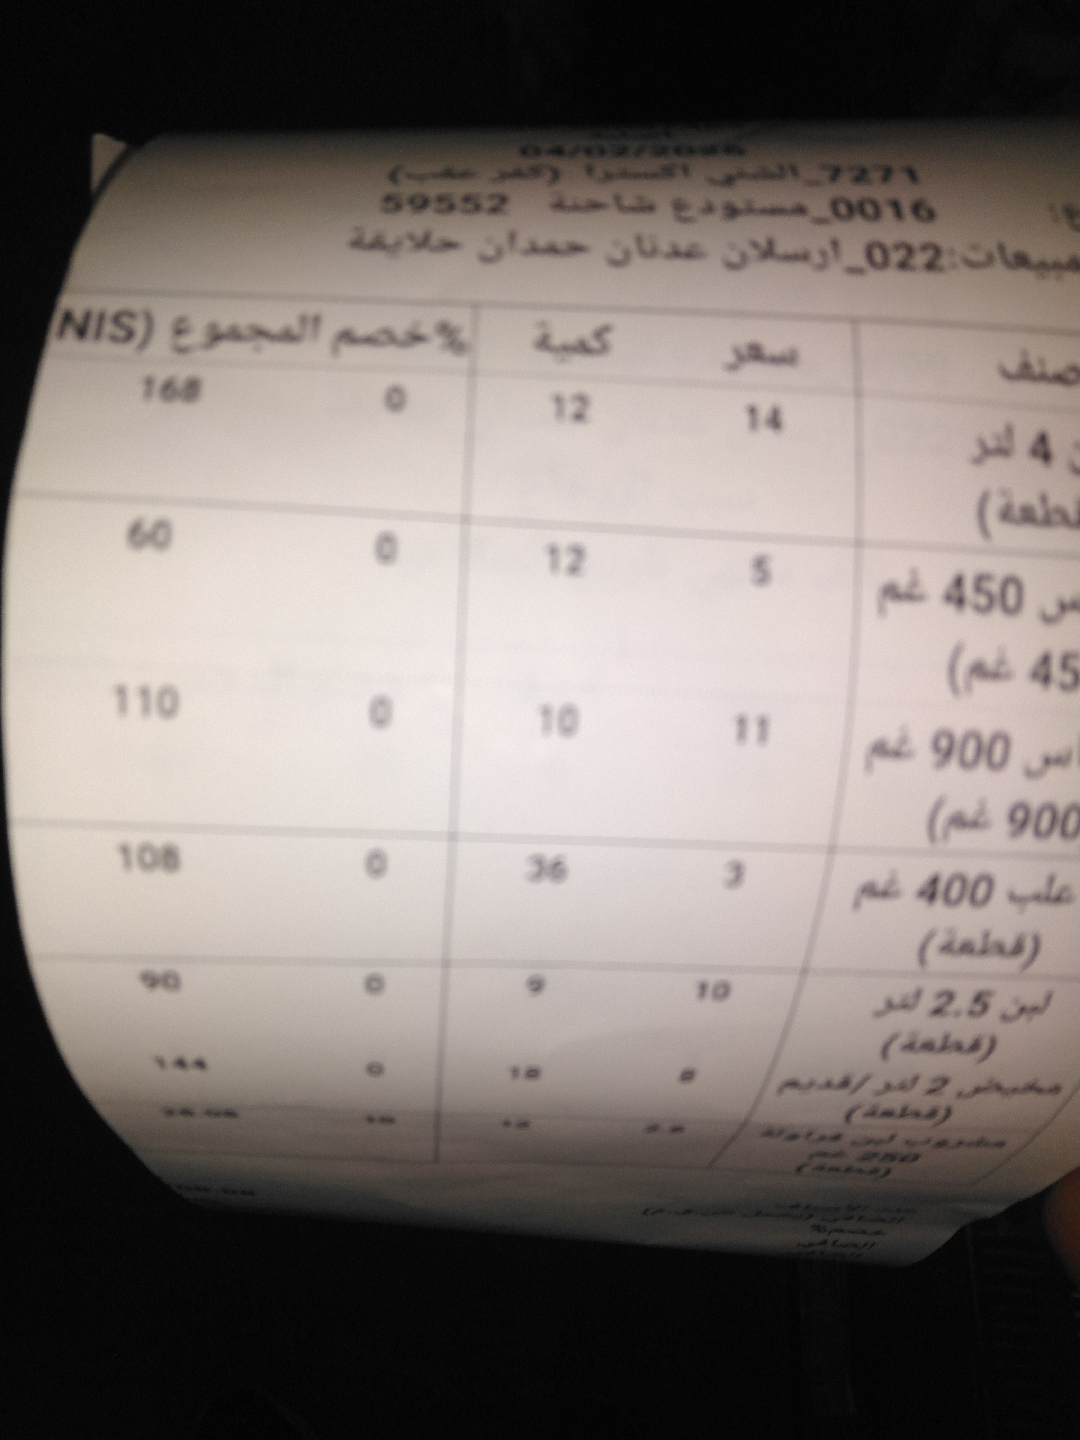 04/02/2026
7271_الشني اكسترا (كفر عقب)
0016_مستودع شاحنة 59552
مبيعات:022_ارسلان عدنان حمدان حلايقة
صنف سعر كمية %خصم المجموع (NIS
4 لتر 14 12 0 168
قطعة)
450 غم 5 12 0 60
45 غم)
900 غم 11 10 0 110
900 غم)
علب 400 غم 3 36 0 108
(قطعة)
لبن 2.5 لتر 10 9 0 90
(قطعة)
مخيض 2 لتر/قديم 8 18 0 144
(قطعة)
مشروب لبن فراولة
250 غم
(قطعة)
خصم%
الصافي